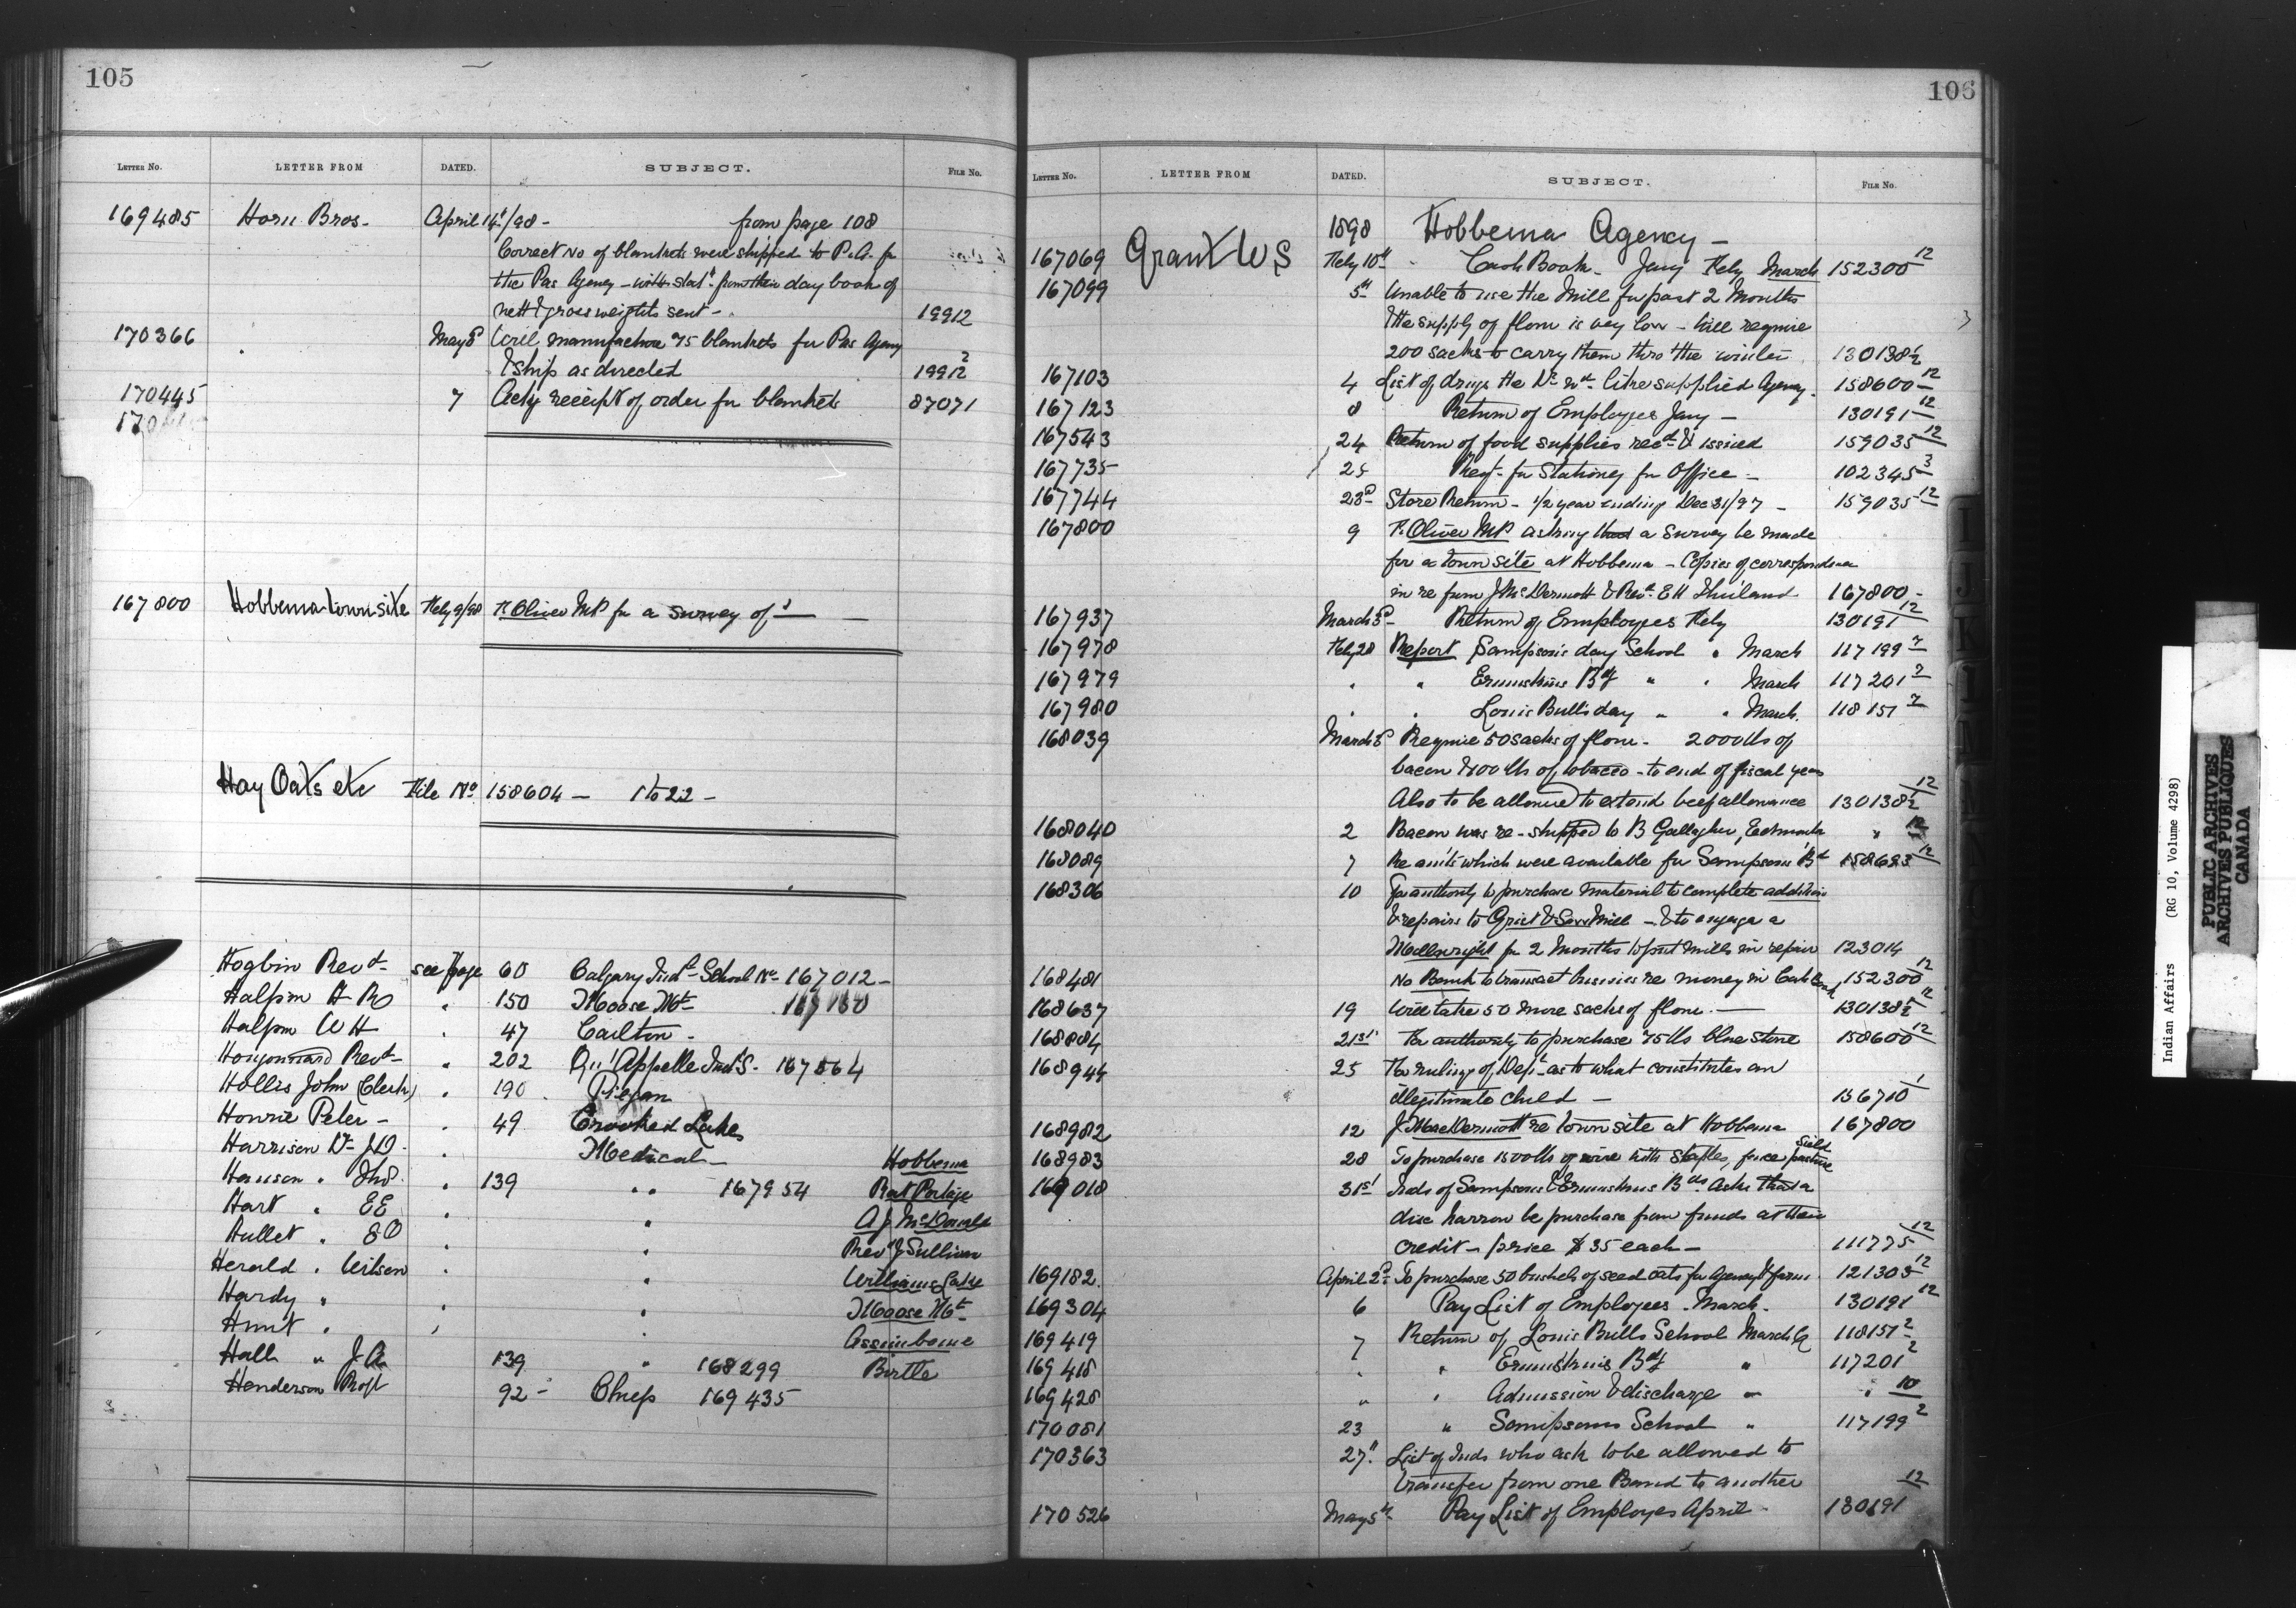 105
LETTER NO. LETTER FROM DATED. SUBJECT. FILE No.
169485 Horn Bros - April 14t/98 - from page 108
Correct No of blankets were shipped to P.A. for
the Pas Agency - with stat't from their day book of
nett & gross weights sent - 19912
170366 " May 3d Will manufacture 75 blankets for Pas Agency
& ship as directed 19912 2
170445 7 Ackg receipt of order for blankets 87071
167800 Hobbema townsite Feby 9/98 F. Oliver MP for a survey of -
Hay Oats etc File No 158604 - 1 to 22 -
Hogbin Revd - see page 60 Calgary Indl School No 167012 -
Halpin H R " 150 Moose Mt
Halpin W H " 47 Carlton -
Hugonnard Revd - " 202 Qu'Appelle Ind S. 167564
Hollis John (Clerk) " 190 Piegan
Hourie Peter - " 49 Crooked Lakes
Harrison Dr J D. " Medical - Hobbema
Hanson " Thos. " 139 " " 167954 Rat Portage
Hart " E E " " A J McDonald
Hullet " E O " " Revd J Sullivan
Herald " Wilson " " Williams Lake
Hardy " " " Moose Mt -
Hunt " " " Assiniboine
Hall " J A 139 " 168299 Birtle
Henderson Profr 92 - Chiefs 169435
106
LETTER NO. LETTER FROM DATED. SUBJECT. FILE No.
1898 Hobbema Agency -
167069 Grant W S Feby 10th " Cash Book - Jany Feby March 152300 12
167099 5th Unable to use the Mill for past 2 Months
& the supply of flour is very low - Will require
200 sacks to carry them thro' the winter 130138 1/2
167103 4 List of drugs the Dr wd. like supplied Agency. 158600 12
167123 8 Return of Employees Jany - 130191 12
167543 24 Return of food supplies recd & issued 159035 12
167735 25 Reqn for Stationey for Office - 102345 3
167744 23d Store Return - 1/2 year ending Dec 31/97 - 159035 12
167800 9 F. Oliver MP asking that a survey be made
for a town site at Hobbema - Copies of correspondence
in re from J McDermott & Revd E H 167800 -
167937 March 3d - Return of Employees Feby 130191 12
167978 Feby 28 Report Sampson's day School " March 117199 2
167979 " " Ermuskins Bdg " " March 117201 2
167980 " " Louis Bulls day " " March. 118151 2
168039 March 3d Require 50 sacks of flour - 2000 lbs of
bacon & 100 lbs of tobacco - to end of fiscal year
Also to be allowed to extend beef allowance 130138 1/2 12
168040 2 Bacon was re-shipped to B Gallagher, Edmonton " 12
168089 7 Re amts which were available for Sampsons Bd 158623 12
168306 10 For authority to purchase material to complete addition
& repairs to Grist & Saw Mill - & to engage a
Millwright for 2 Months to put mills in repair 123014
168481 No Bank to transact business re money in Cash Book 152300 12
168637 19 Will take 50 more sacks of flour. - 130138 1/2 12
168884 21st For authority to purchase 75 lbs blue stone 158600 12
168944 25 For ruling of Dept as to what constitutes an
illegitimate child - 136710 1
168982 12 J MacDermott re town site at Hobbema 167800
168983 28 To purchase 1500 lbs of wire with staples, fence field pasture
169018 31st Inds of Sampsons & Ermuskins Bds. Asks that a
disc harrow be purchase from funds at their
credit - price $35 each - 111775 12
169182. April 2d - To purchase 50 bushels of seed oats for Agency & farm. 121303 12
169304 6 Pay List of Employees - March - 130191 12
169419 7 Return of Louis Bulls School March Qr 118151 2
169418 " " Ermuskins Bdg " 117201 2
169428 " " Admission & discharge " " 10
170081 23 " Sampsons School " 117199 2
170363 27th List of Inds who ask to be allowed to
transfer from one Band to another 12
170526 May 5th - Pay List of Employes April - 130191
I
J
K
Indian Affairs (RG 10, Volume 4298)
PUBLIC ARCHIVES
ARCHIVES PUBLIQUES
CANADA